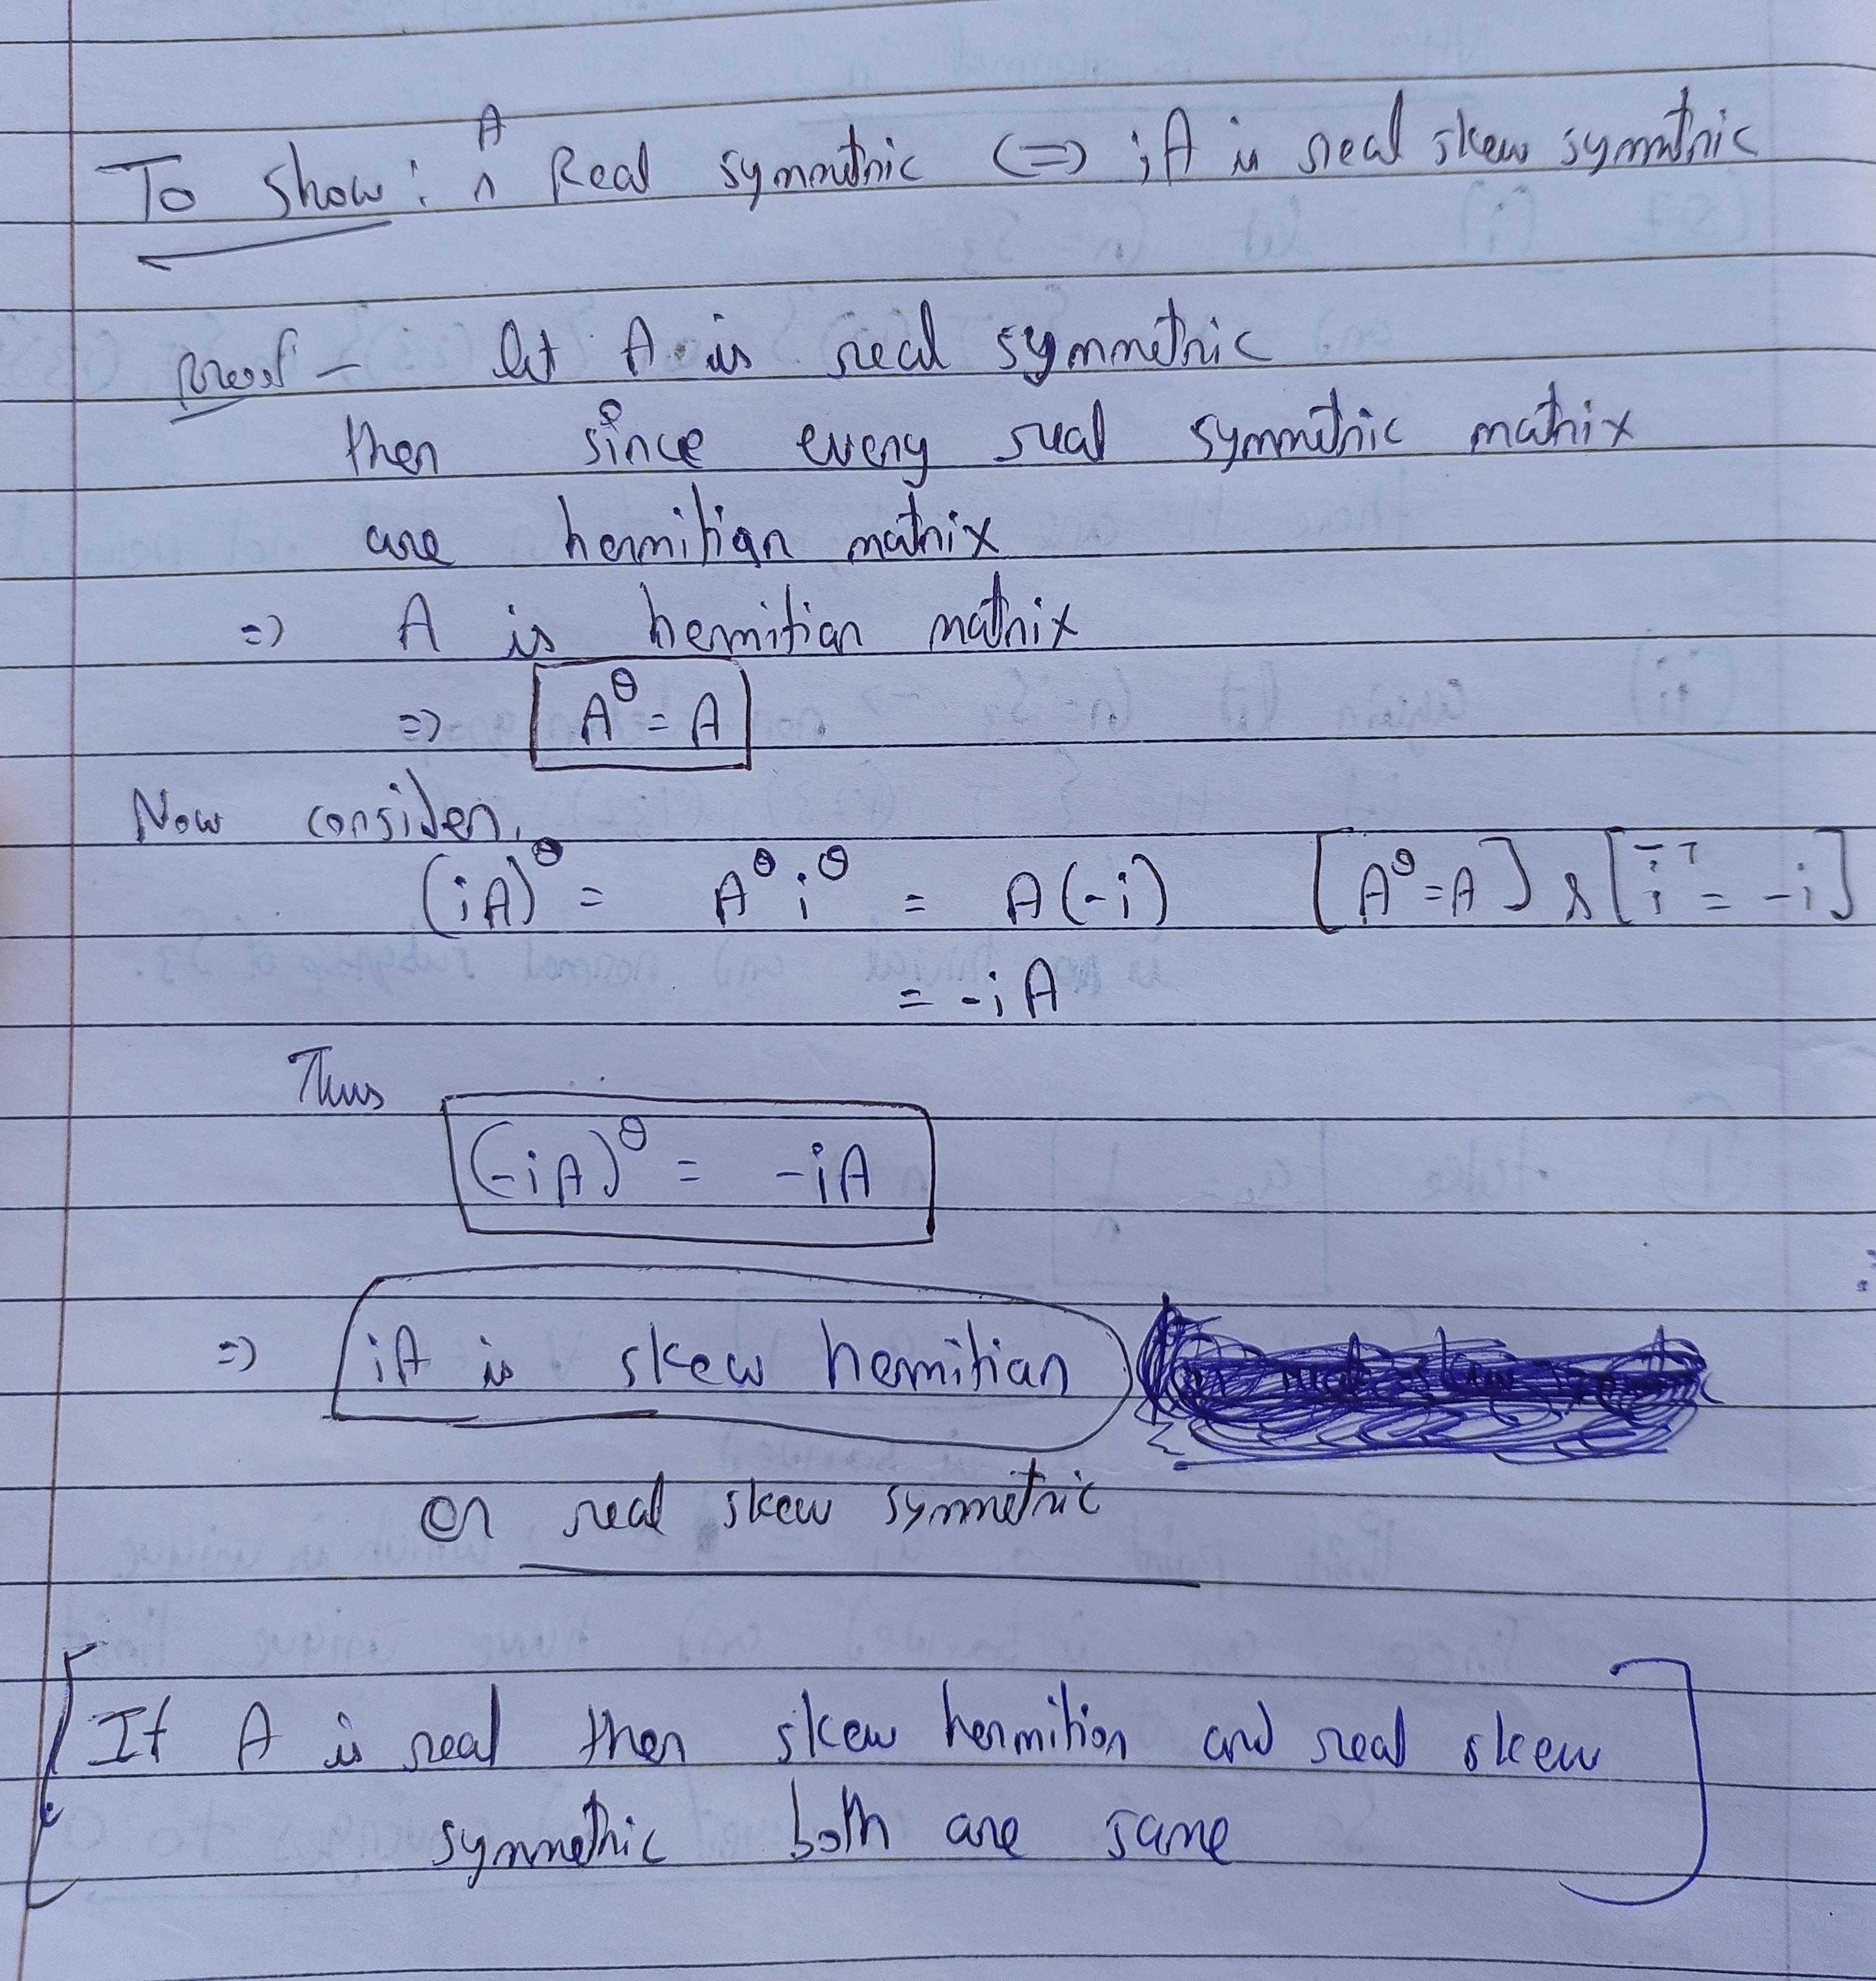 To show: A Real symmetric <=> iA is real skew symmtric
proof - let A is real symmetric
then since every real symmetric matrix
are hermitian matrix
=> A is hermitian matrix
=> A^θ = A
Now consider,
(iA)^θ = A^θ i^θ = A(-i) [A^θ = A] & [i̅^T = -i]
= -iA
Thus
(-iA)^θ = -iA
=> iA is skew hermitian
or real skew symmetric
[If A is real then skew hermition and real skew
symmetric both are same]